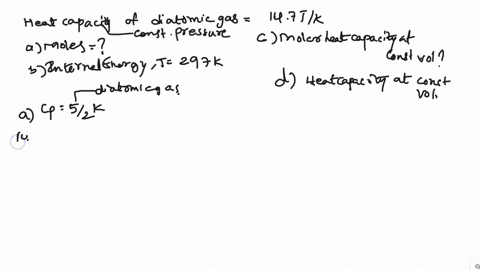 Heat capacity of diatomic gas = 14.7J/k
const. pressure
a) Moles = ?
b) Internal Energy, T = 297k
c) Molar heat capacity at const vol?
d) Heat capacity at const vol.
diatomic gas
a) Cp = 5/2 K
14.